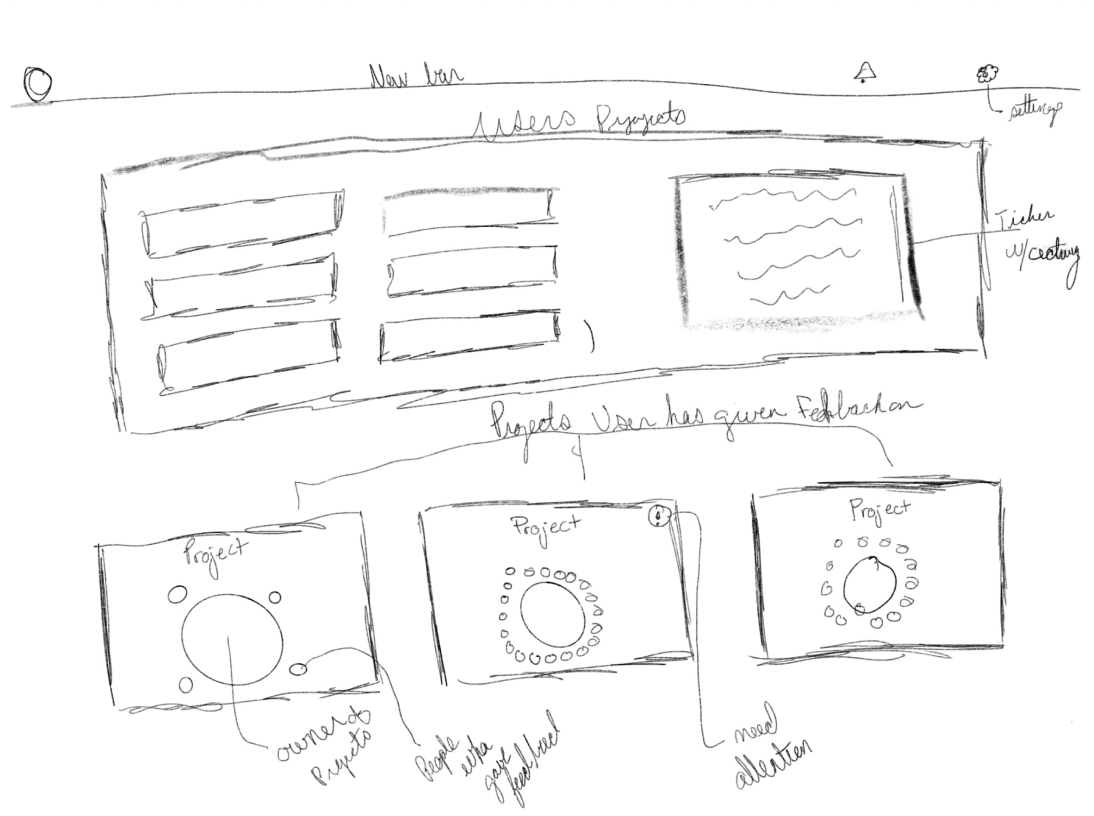 New bar
settings
Users Projects
Ticker
w/
Projects User has given Feedback on
Project
Project
Project
owner of
Projects
People
who
gave
feedback
need
attention